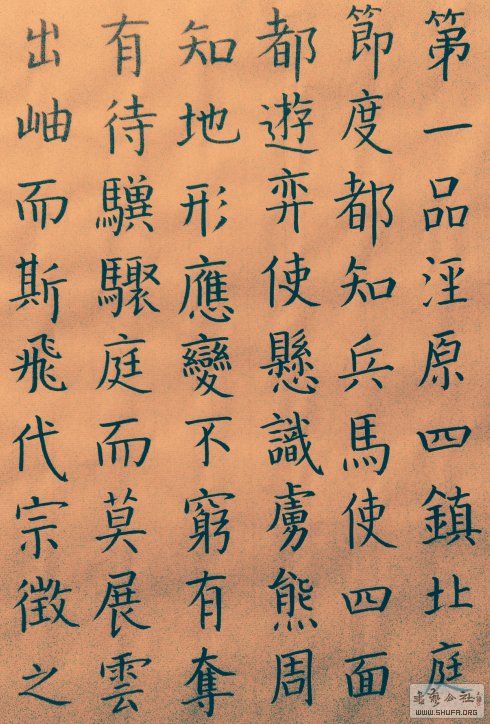 第一品涇原四鎮北庭
節度都知兵馬使四面
都遊弈使懸識虜熊周
知地形應變不窮有奪
有待驥驟庭而莫展雲
出岫而斯飛代宗徵之
WWW.SHUFA.ORG